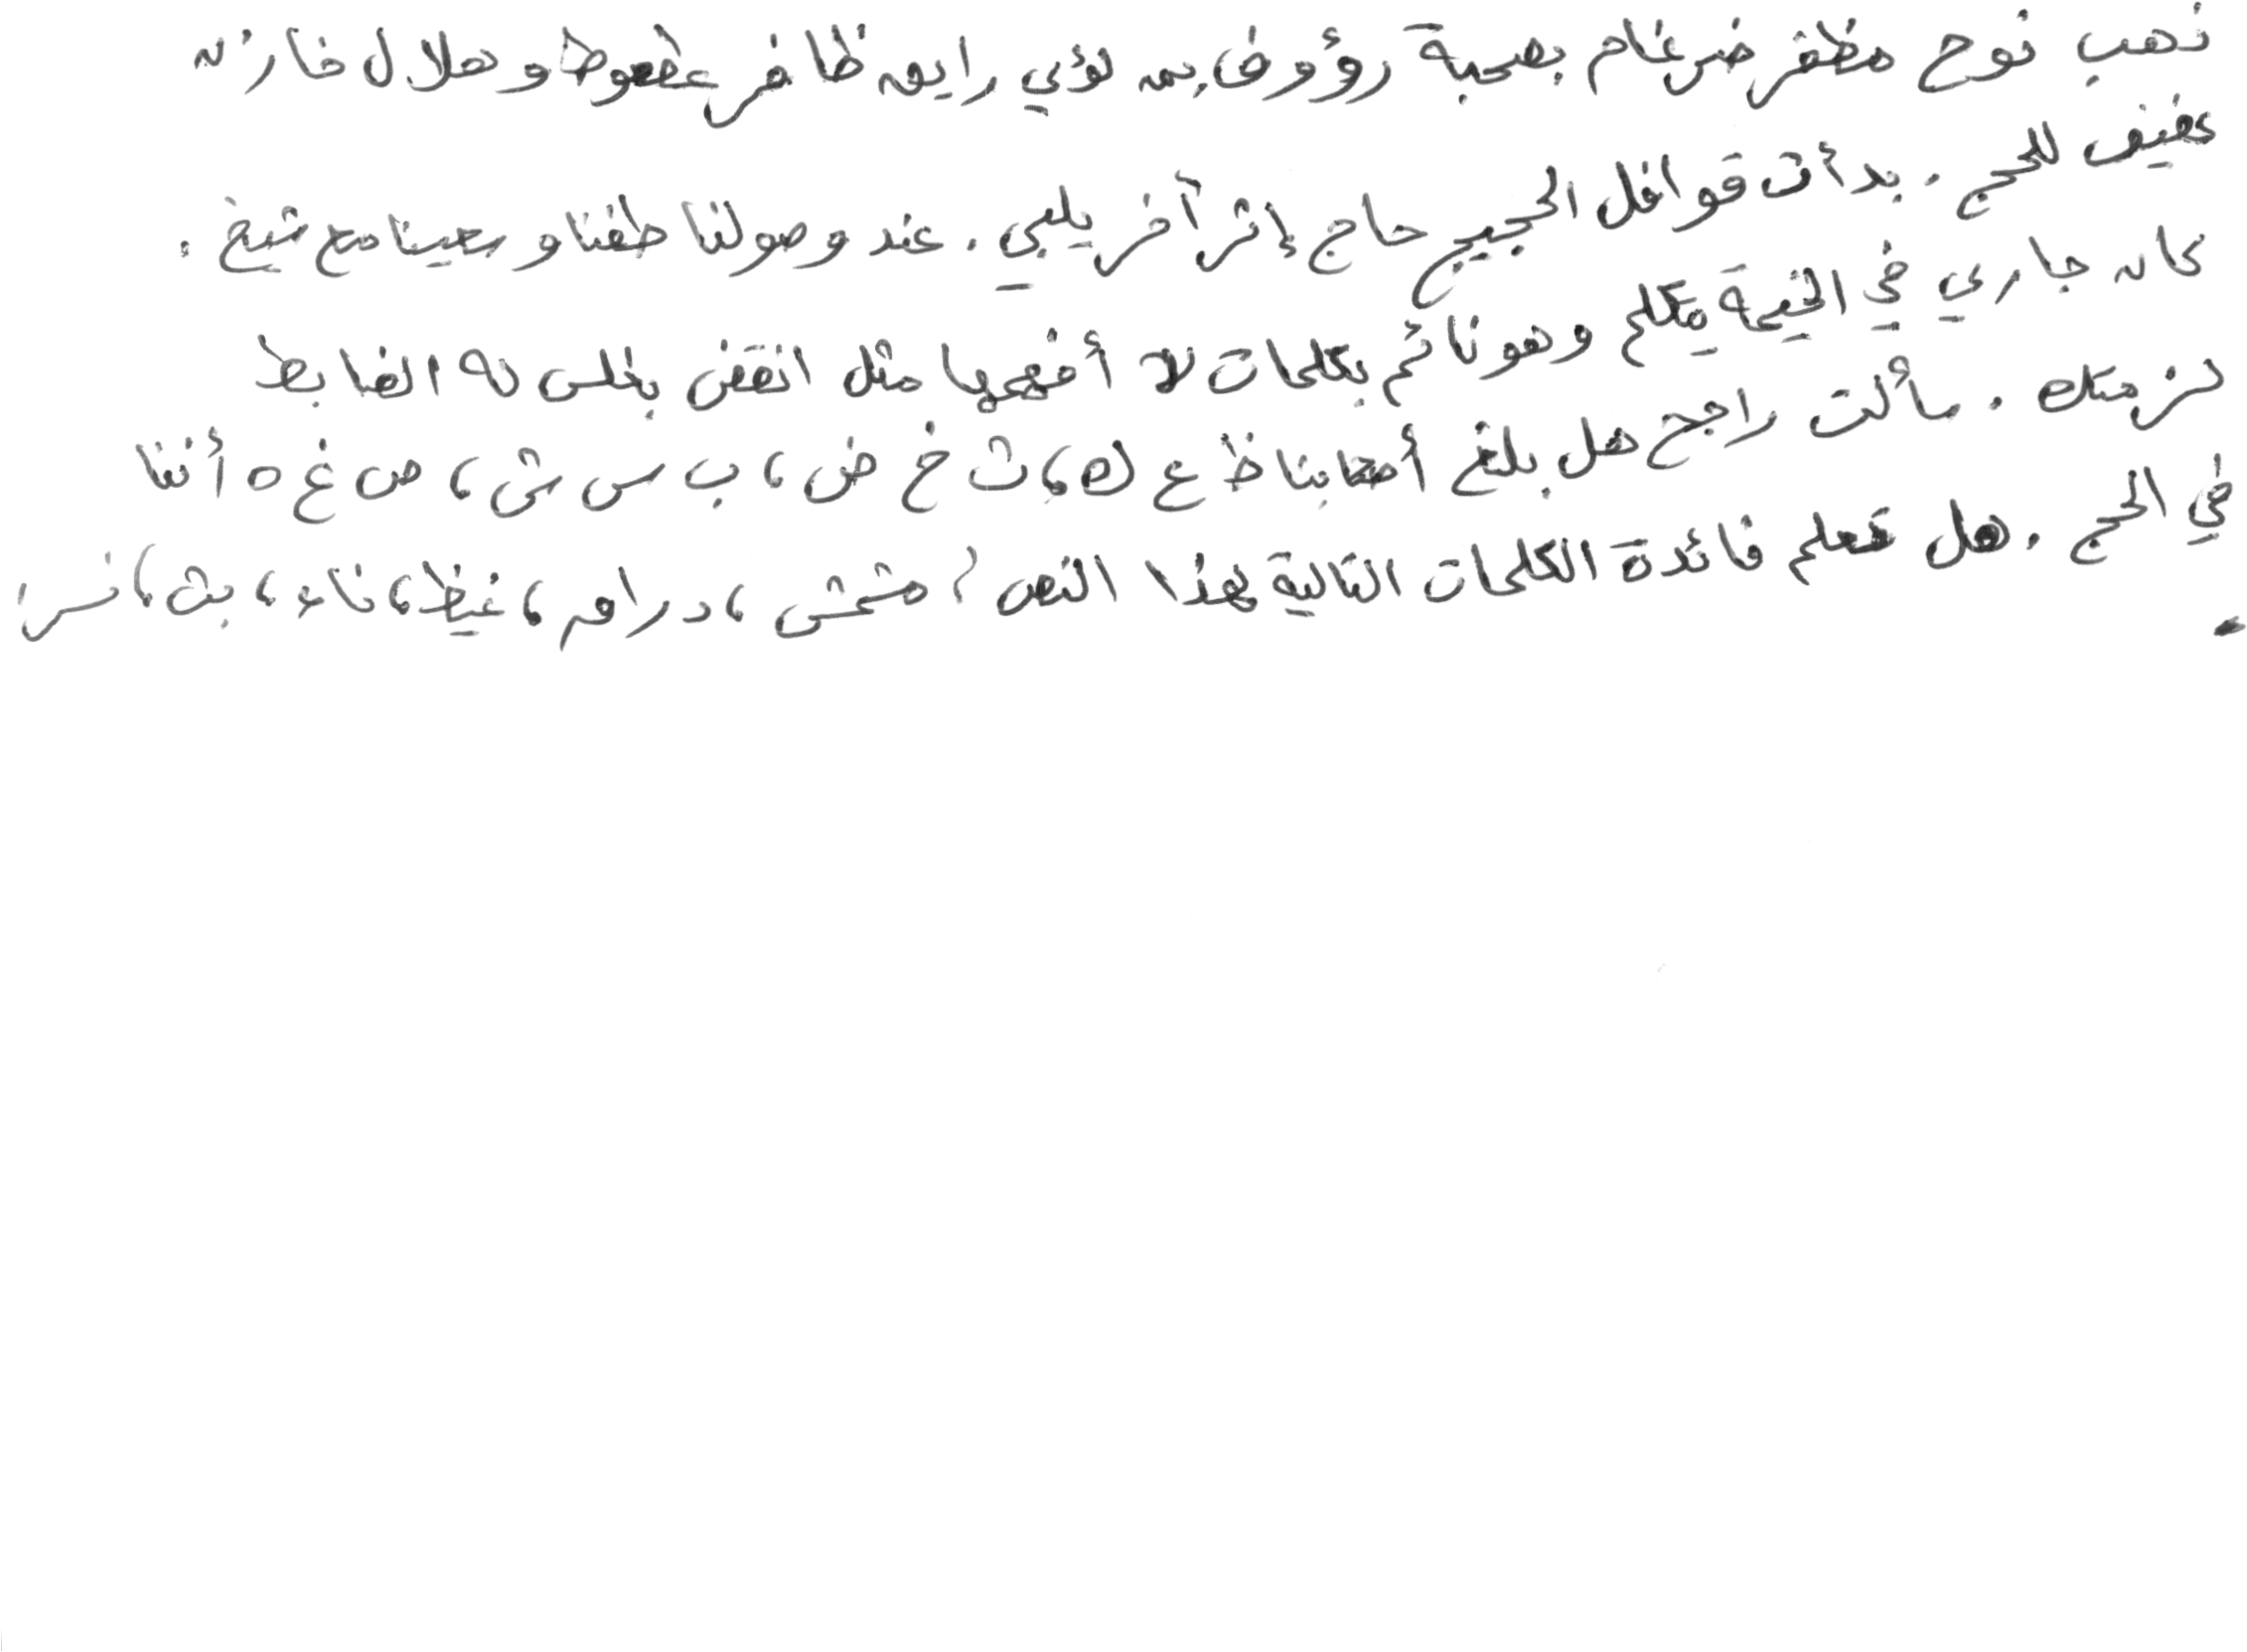 ذهب نوح مظفر ضرغام بصحبة رؤوف بن لؤي رايق ظافر عطعوط وهلال خازن
عفيف للحج . بدأت قوافل الحجيج حاج إثر آخر يلبي . عند وصولنا طفنا وسعينا مع شيخ .
كان جاري في الخيمة يتكلم وهو نائم بكلمات لا أفهمها مثل انقض بغلس له الضابط
لزمتك . سألت راجح هل بلغ أصحابنا ظ ع ك ، ث خ ض ، ب س ش ، ص غ ه أننا
في الحج . هل تعلم فائدة الكلمات التالية لهذا النص ؟ مشمش ، دراق ، غيظ ، ناء ، بث ،